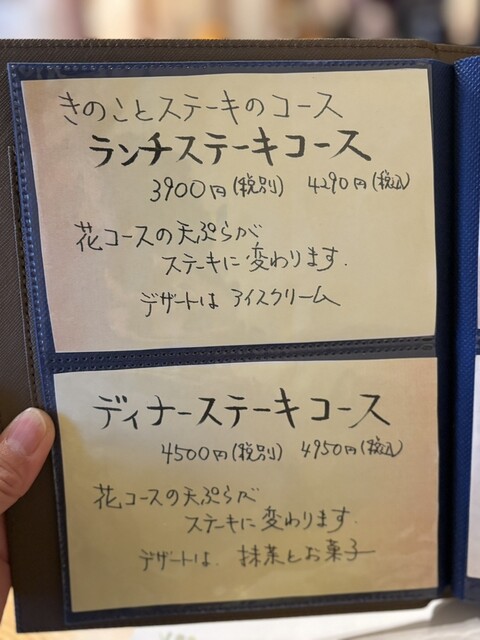 きのことステーキのコース
ランチステーキコース
3900円(税別) 4290円(税込)
花コースの天ぷらが
ステーキに変わります.
デザートは アイスクリーム
ディナーステーキコース
4500円(税別) 4950円(税込)
花コースの天ぷらが
ステーキに変わります.
デザートは. 抹茶とお菓子